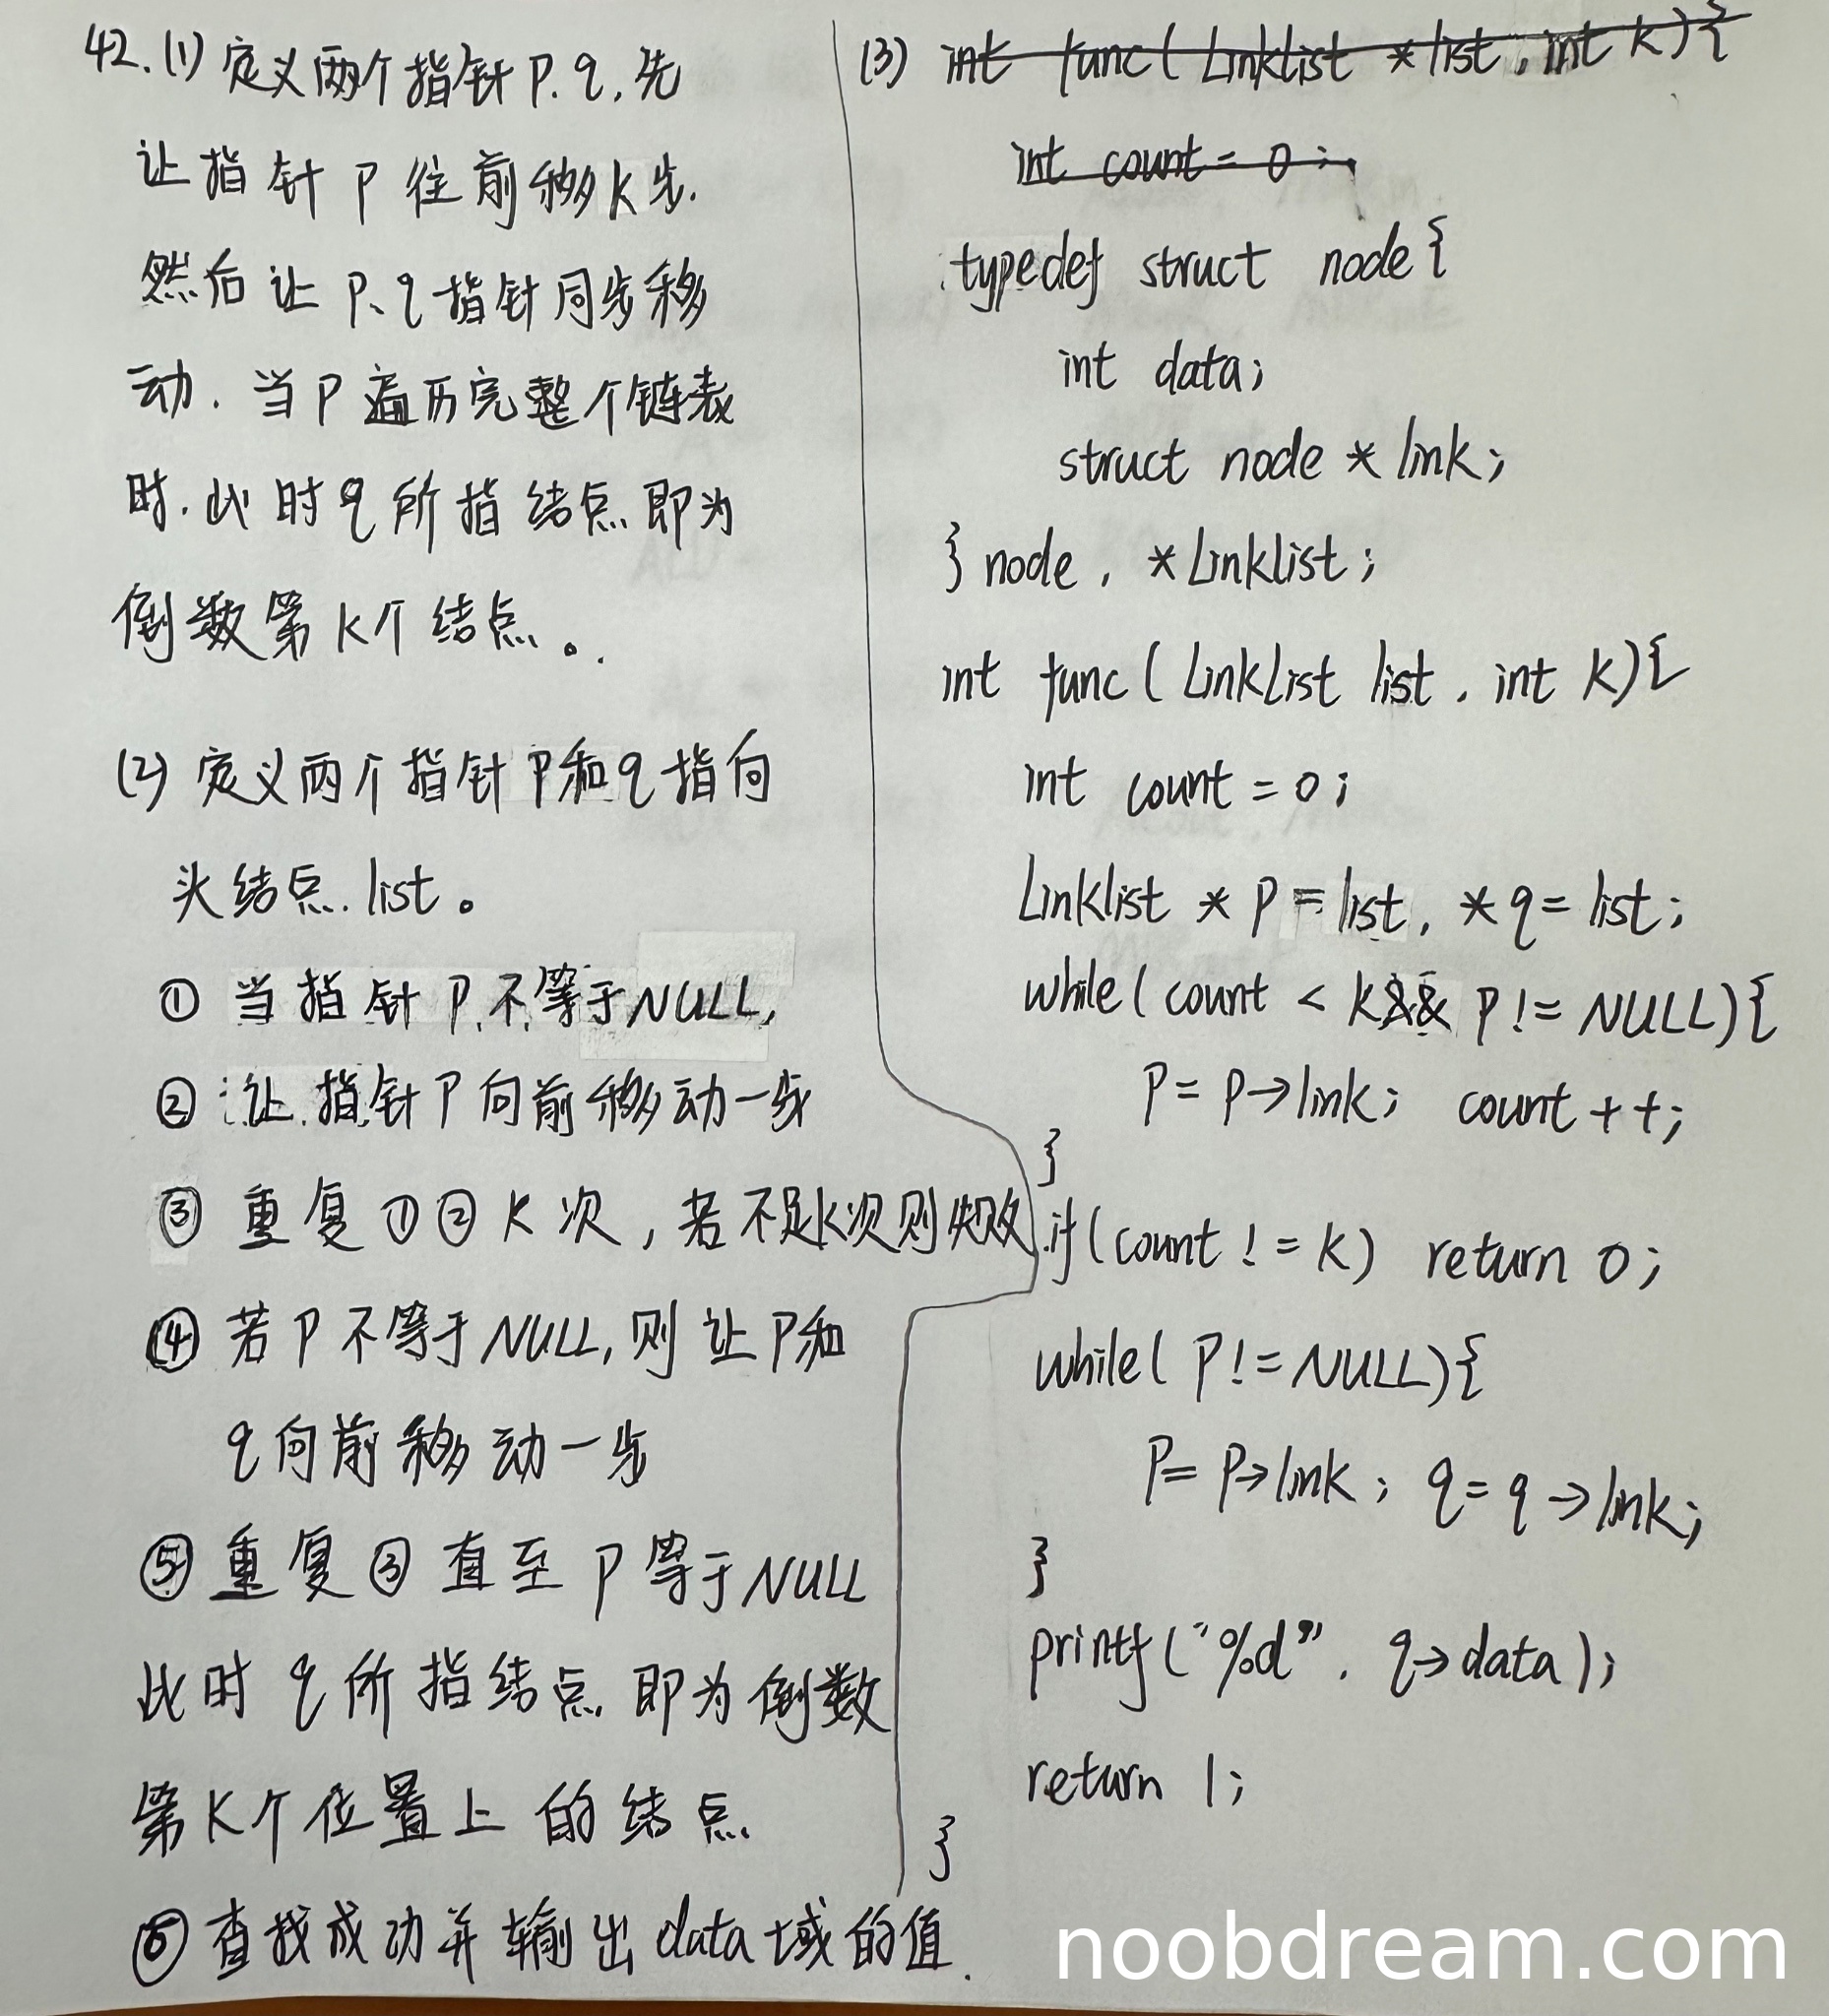 42.(1) 定义两个指针P、q,先
让指针P往前移K步.
然后让P、q指针同步移
动.当P遍历完整个链表
时.此时q所指结点即为
倒数第K个结点。
(2) 定义两个指针P和q指向
头结点list。
① 当指针P不等于NULL,
② 让指针P向前移动一步
③ 重复①②K次,若不足K次则失败
④ 若P不等于NULL,则让P和
q向前移动一步
⑤ 重复③直至P等于NULL
此时q所指结点即为倒数
第K个位置上的结点
⑥ 查找成功并输出data域的值.
(3) int func(Linklist *list, int K){
int count = 0;
typedef struct node{
int data;
struct node * link;
} node, *Linklist;
int func(LinkList list, int K){
int count = 0;
Linklist * P = list, * q = list;
while(count < K && P != NULL){
P = P->link; count ++;
}
if(count != K) return 0;
while(P != NULL){
P = P->link; q = q->link;
}
printf("%d", q->data);
return 1;
}
noobdream.com